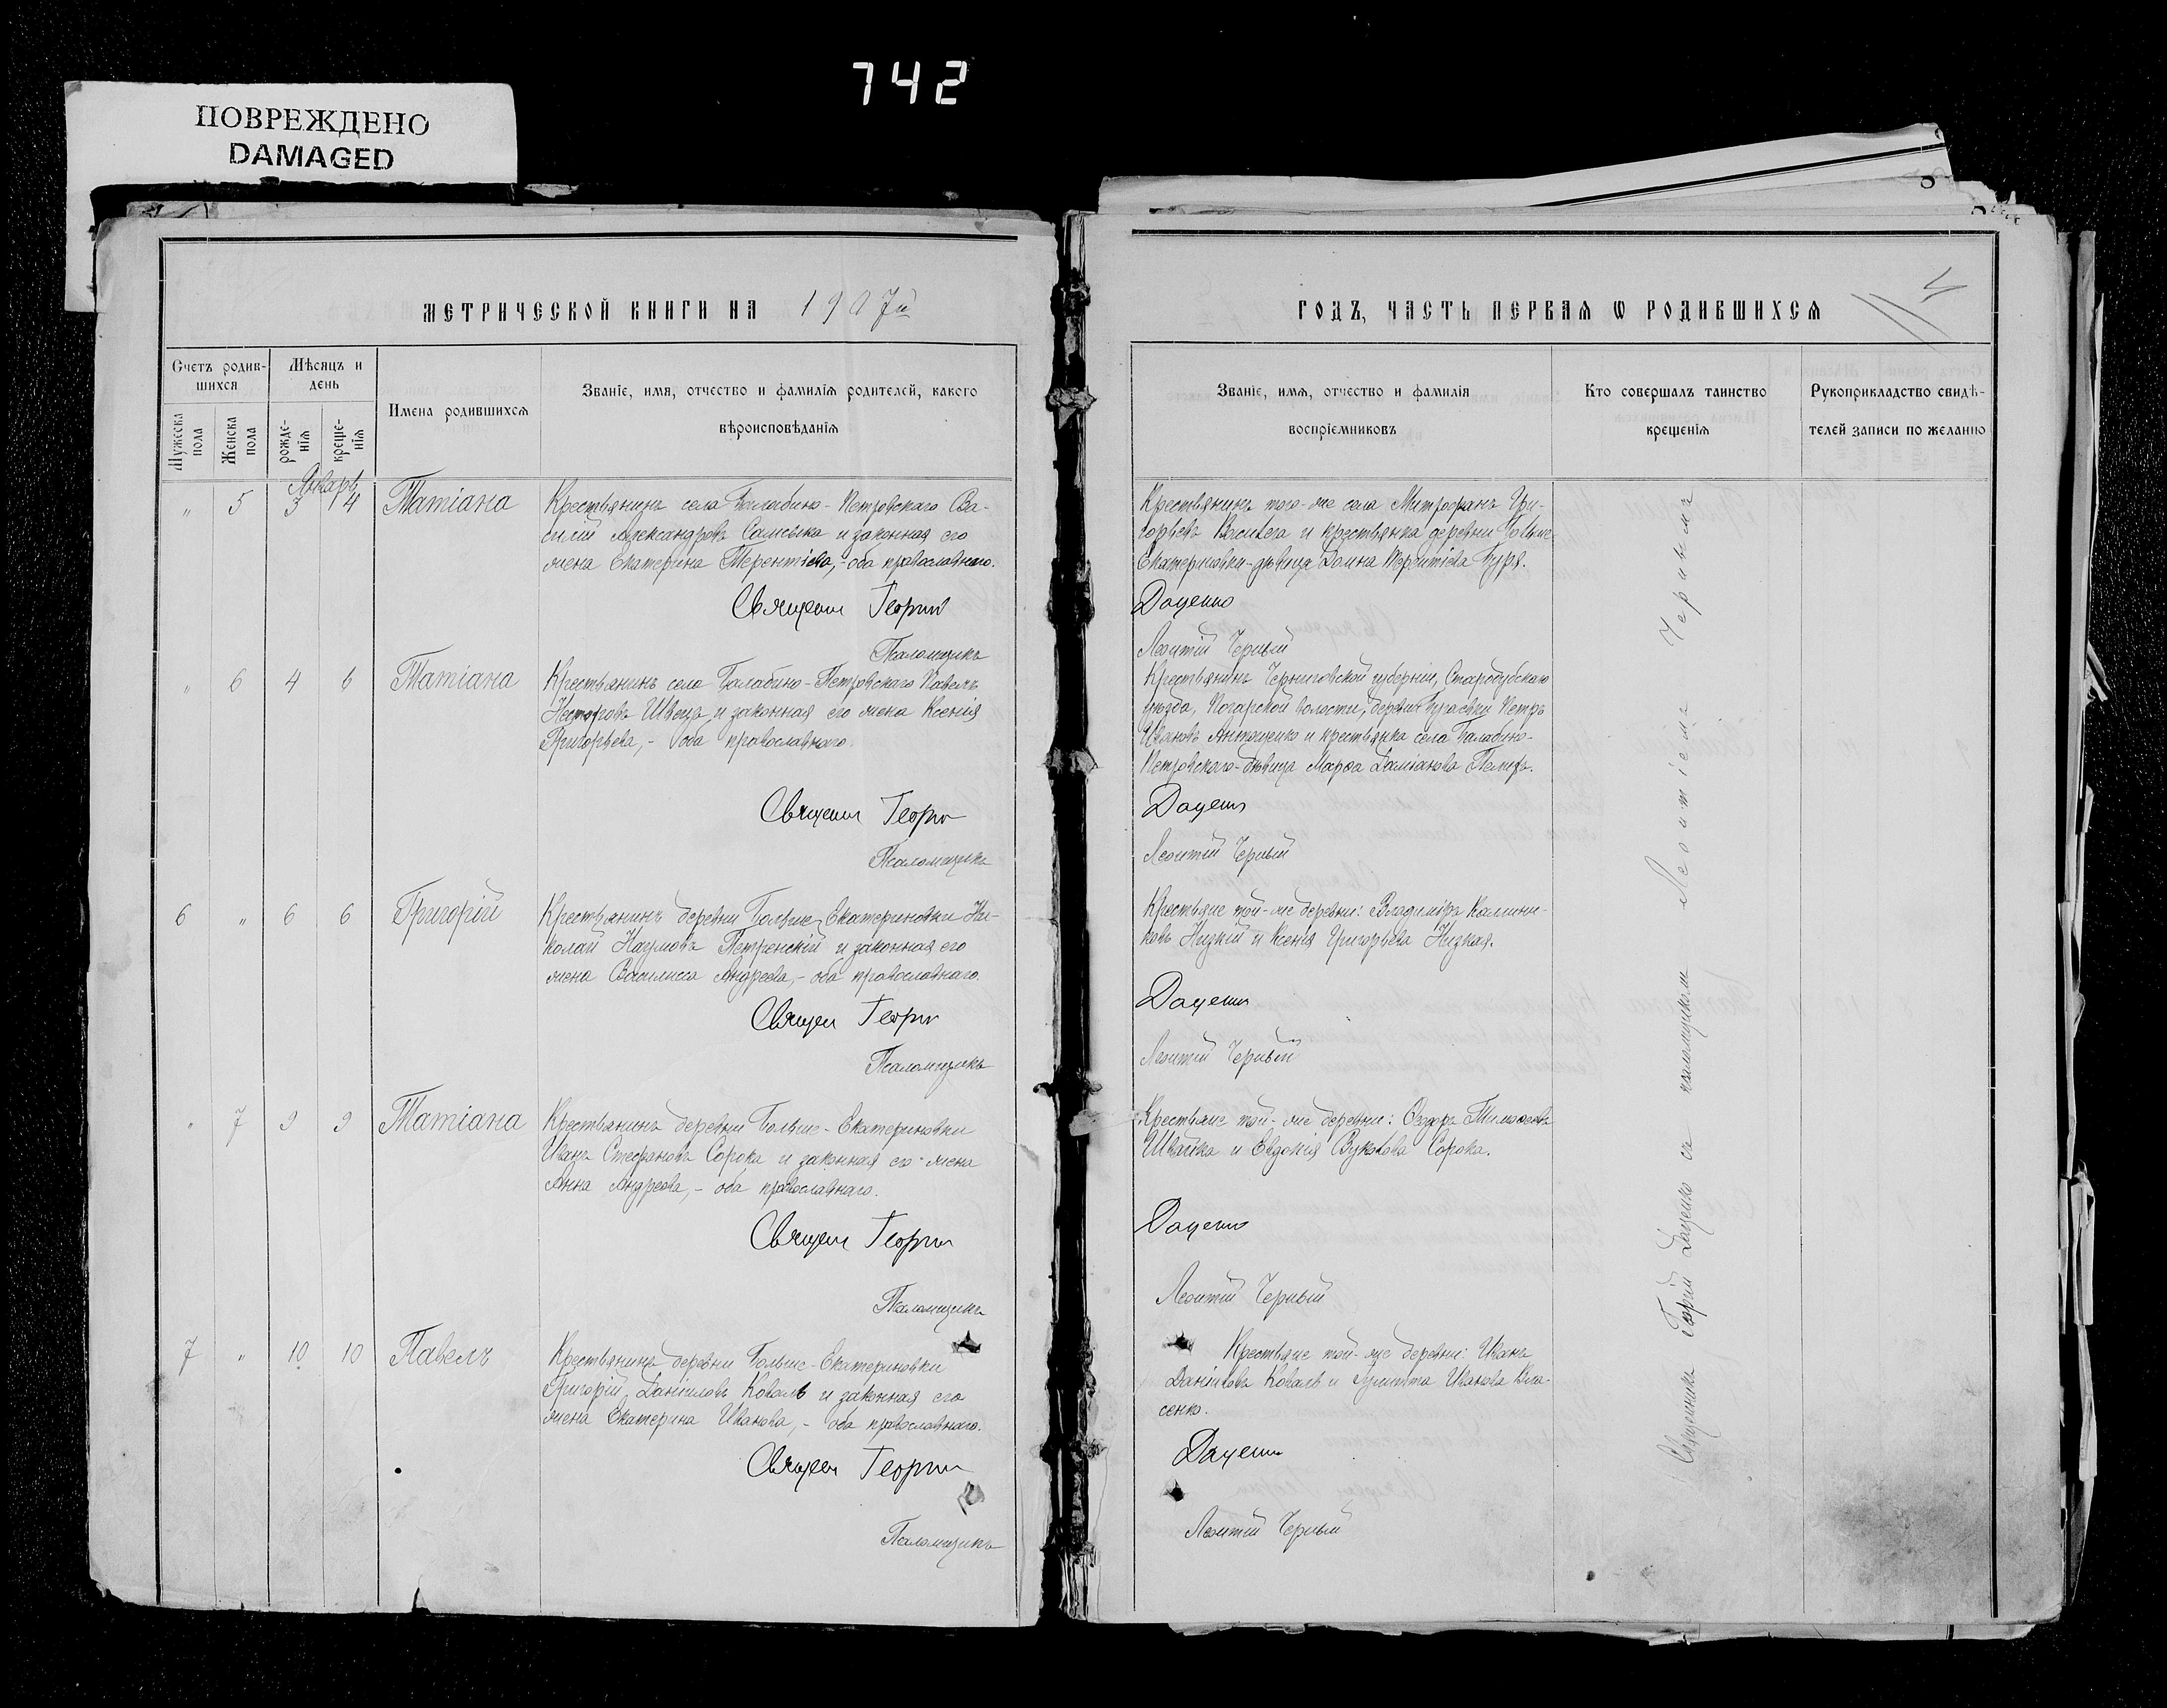 742
ПОВРЕЖДЕНО
DAMAGED
МЕТРИЧЕСКОЙ КНИГИ НА 1907й
Счетъ родив-
шихся
Мужеска
пола
Женска
пола
Мѣсяцъ и
день
рожде-
нія
креще-
нія
Имена родившихся
Званіе, имя, отчество и фамилія родителей, какого
вѣроисповѣданія
Январь
" 5 3 14 Татіана
Крестьянинъ села Балабино-Петровскаго Ва-
силій Александровъ и законная его
жена Екатерина Терентіева,- оба православнаго.
Священ Георгій
Псаломщикъ
" 6 4 6 Татіана
Крестьянинъ села Балабино-Петровскаго Павелъ
Несторовъ Швецъ и законная его жена Ксенія
Григорьева,- оба православнаго.
Священ Георгій
Псаломщикъ
6 " 6 6 Григорій
Крестьянинъ деревни Больше-Екатериновки Ни-
колай Наумовъ Петренскій и законная его
жена Василисса Андреева,- оба православнаго.
Священ Георгій
Псаломщикъ
" 7 9 9 Татіана
Крестьянинъ деревни Больше-Екатериновки
Иванъ Стефановъ Сорока и законная его жена
Анна Андреева,- оба православнаго.
Священ Георгій
Псаломщикъ
7 " 10 10 Павелъ
Крестьянинъ деревни Больше-Екатериновки
Григорій Даніиловъ Коваль и законная его
жена Екатерина Иванова,- оба православнаго.
Священ Георгій
Псаломщикъ
ГОДЪ, ЧАСТЬ ПЕРВАЯ Ѡ РОДИВШИХСЯ
Званіе, имя, отчество и фамилія
воспріемниковъ
Кто совершалъ таинство
крещенія
Рукоприкладство свидѣ-
телей записи по желанію
Крестьянинъ того-же села Митрофанъ Гри-
горьевъ и крестьянка деревни Больше-
Екатериновки-дѣвица Домна Терентіева Буря.
Даценко
Леонтій Черный
Крестьянинъ Черниговской губерніи, Стародубскаго
уѣзда, Погарской волости, деревни Петръ
Ивановъ Антощенко и крестьянка села Балабино-
Петровскаго-дѣвица Марѳа Даміанова
Даценко
Леонтій Черный
Крестьяне той-же деревни: Владиміръ Каллини-
ковъ Низкій и Ксенія Григорьева Низкая.
Даценко
Леонтій Черный
Крестьяне той-же деревни: Ѳедоръ Тимоѳеевъ
Швайка и Евдокія Вуколова Сорока.
Даценко
Леонтій Черный
Крестьяне той-же деревни: Иванъ
Даніиловъ Коваль и Іулитта Иванова Вла-
сенко.
Даценко
Леонтій Черный
Священникъ Георгій Даценко съ псаломщикомъ Леонтіемъ Чернымъ